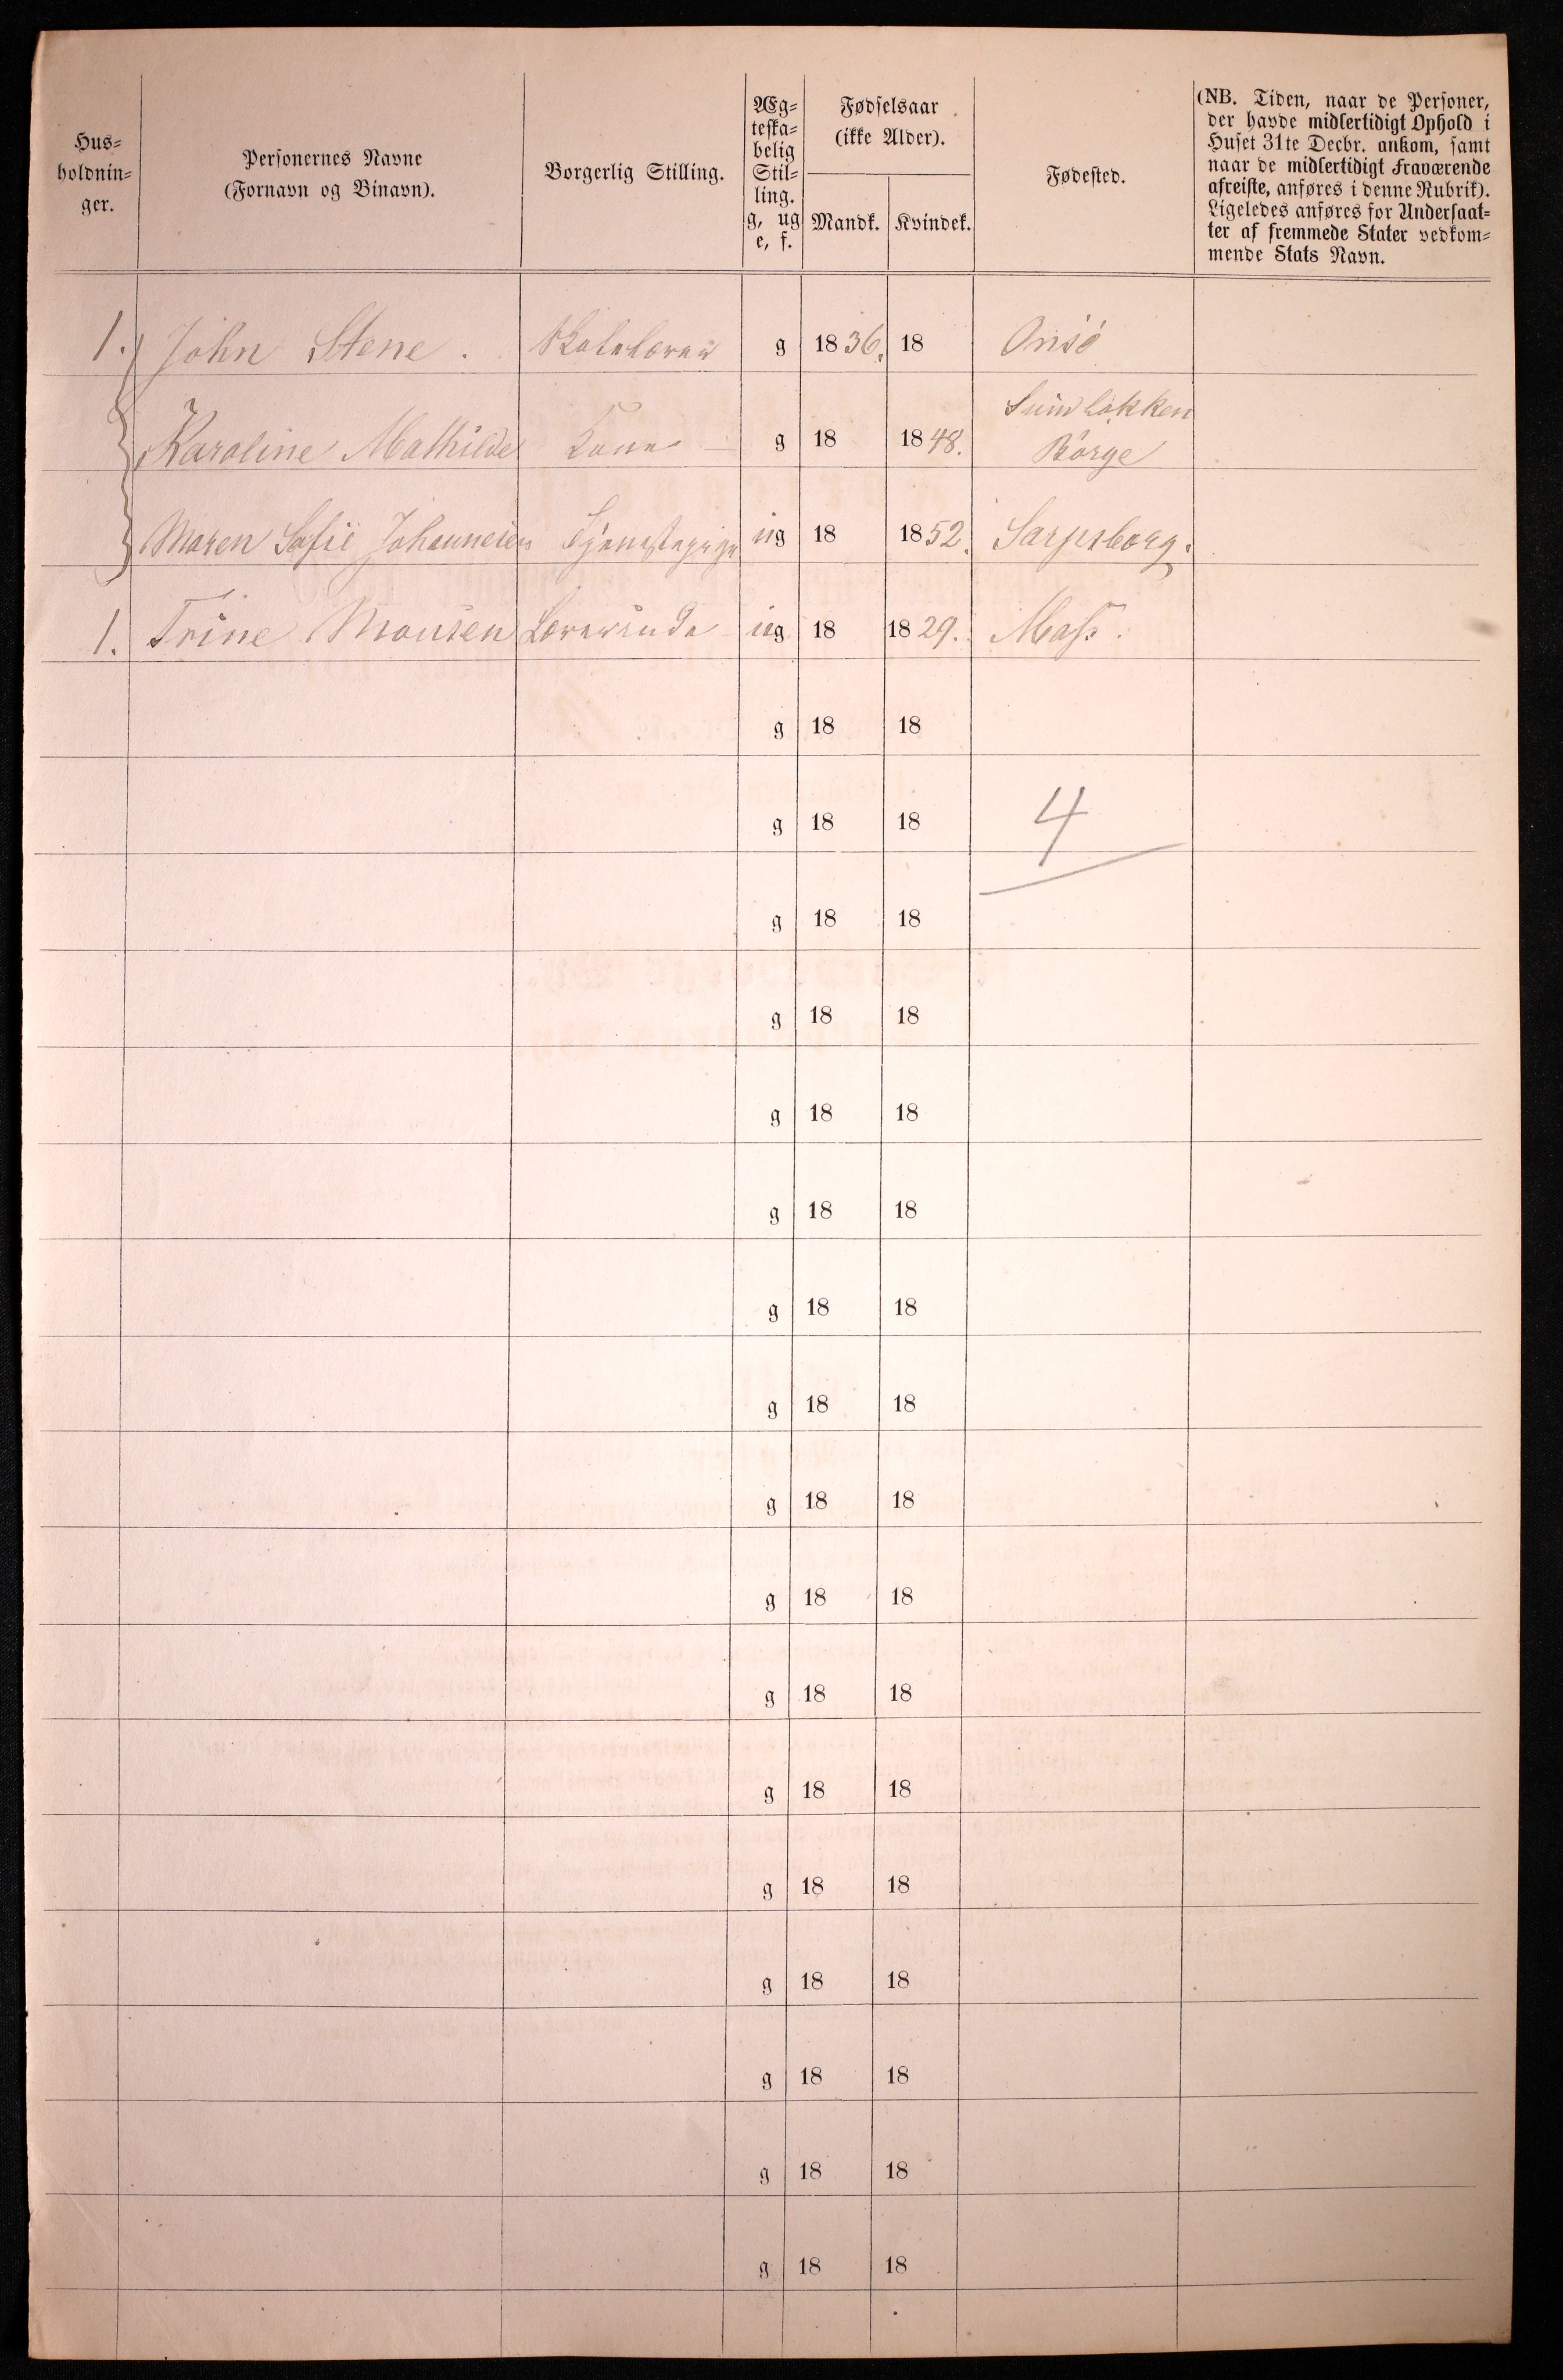 Hus=
holdnin=
ger.
Personernes Navne
(Fornavn og Binavn).
Borgerlig Stilling.
Æg=
teska=
belig
Stil=
ling.
g, ug
e, f.
Fødselsaar
(ikke Alder).
Mandk. Kvindek.
Fødested.
(NB. Tiden, naar de Personer,
der havde midlertidigt Ophold i
Huset 31te Decbr. ankom, samt
naar de midlertidigt Fraværende
afreiste, anføres i denne Rubrik).
Ligeledes anføres for Undersaat=
ter af fremmede Stater vedkom=
mende Stats Navn.
1. John Stene. Skolelærer g 1836. 18 Onsö
Karoline Mathilde Kone g 18 1848. Sundløkken
Börge
Maren Sofie Johannesen Tjenestepige ug 18 1852. Sarpsborg.
1. Trine Monsen Lærerinde ug 18 1829. Moss.
g 18 18
g 18 18 4
g 18 18
g 18 18
g 18 18
g 18 18
g 18 18
g 18 18
g 18 18
g 18 18
g 18 18
g 18 18
g 18 18
g 18 18
g 18 18
g 18 18
g 18 18